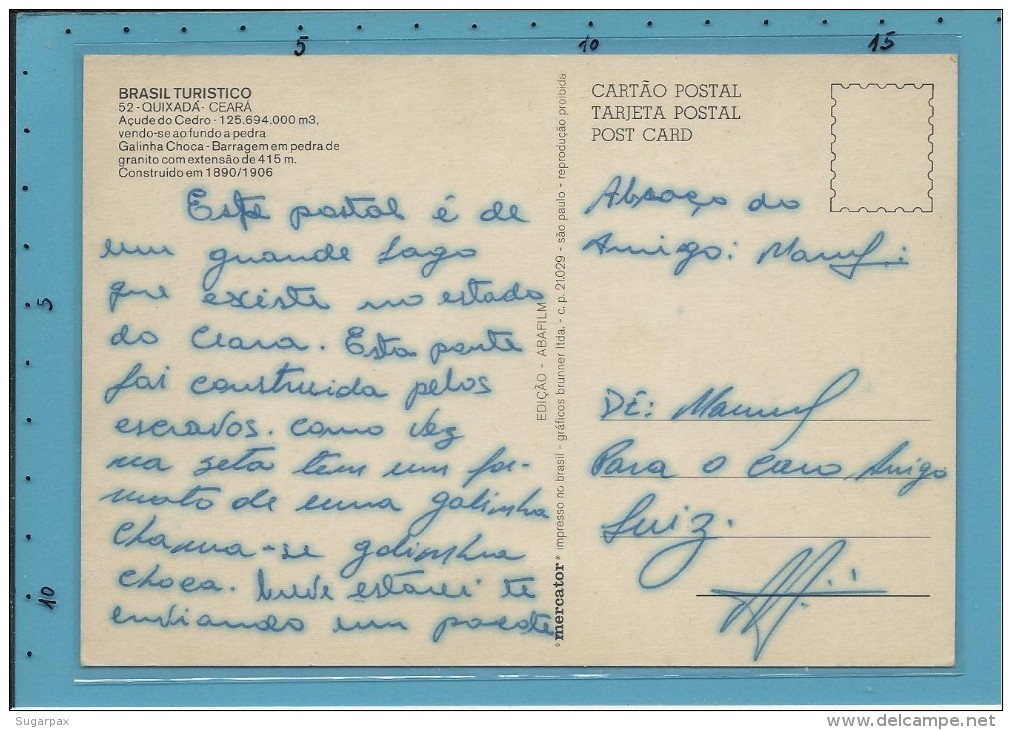 BRASIL TURISTICO
52 - QUIXADÁ - CEARÁ
Açude do Cedro - 125.694.000 m3,
vendo-se ao fundo a pedra
Galinha Choca - Barragem em pedra de
granito com extensão de 415 m.
Construido em 1890/1906
Este postal é de
um grande Lago
que existe no estado
do Ceara. Esta ponte
foi construida pelos
escravos. como vez
na seta tem um for-
mato de uma galinha
chama-se galinha
choca. breve estarei te
enviando um pacote
EDIÇÃO - ABAFILM
mercator® impresso no brasil - gráficos brunner ltda. - c. p. 21.029 - são paulo - reprodução proibida
CARTÃO POSTAL
TARJETA POSTAL
POST CARD
Abraço do
Amigo: Manuel
DE: Manuel
Para o caro Amigo
Luiz.
5
10
15
5
10
Sugarpax
www.delcampe.net